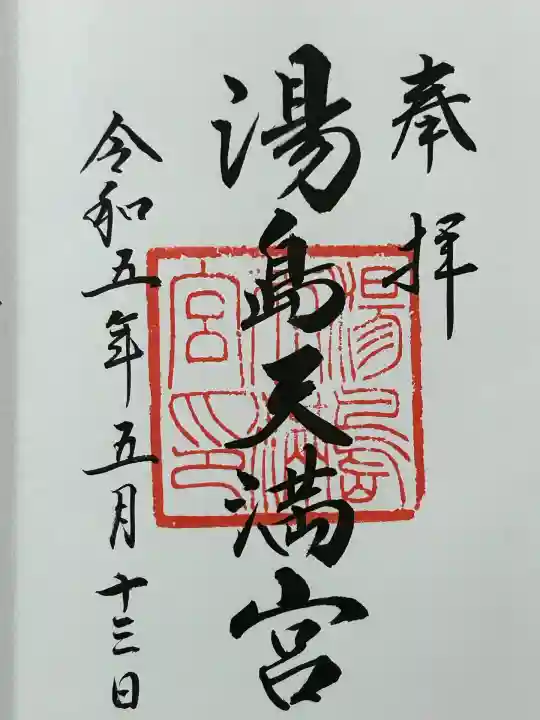 奉拝
湯島天満宮
令和五年五月十三日
湯島
天満
宮印